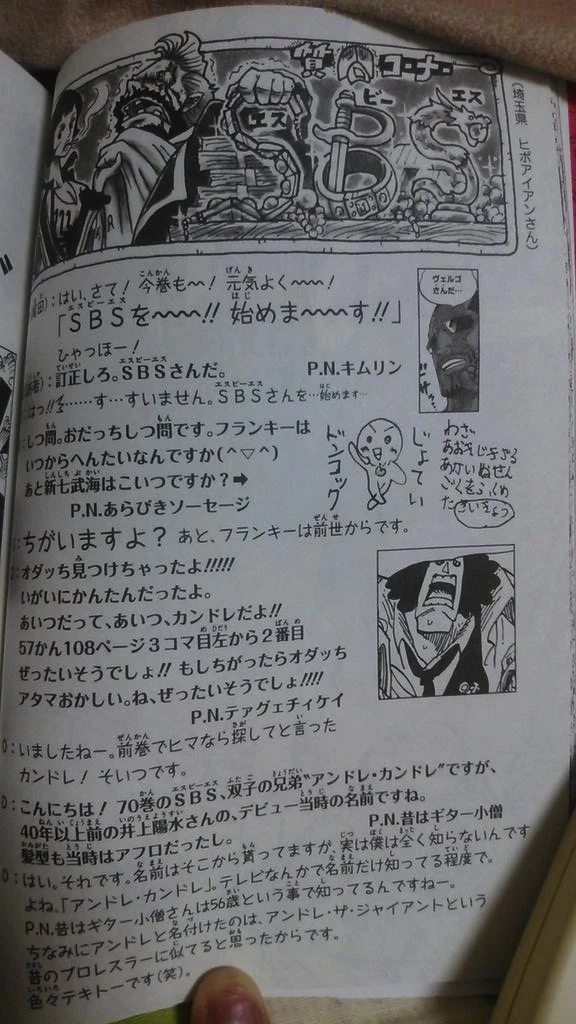 質問コーナー
エス ビー エス
SBS
(埼玉県 ヒポアイアンさん)
：はい、さて！今巻も〜！元気よく〜〜！
「SBSを〜〜〜!! 始めま〜〜〜す!!」
ヴェルゴさんだ…
ひゃっほー！
：訂正しろ。SBSさんだ。 P.N.キムリン
：はっ!!す……す…すいません。SBSさんを…始めます…
：しつ問。おだっちしつ問です。フランキーは
いつからへんたいなんですか(^▽^)
あと新七武海はこいつですか？➡
P.N.あらびきソーセージ
ドンコッグ
じょてい
：ちがいますよ？ あと、フランキーは前世からです。
：オダッち見つけちゃったよ!!!!!
いがいにかんたんだったよ。
あいつだって、あいつ、カンドレだよ!!
57かん108ページ3コマ目左から2番目
ぜったいそうでしょ!! もしちがったらオダッち
アタマおかしい。ね、ぜったいそうでしょ!!!!
P.N.テァグェチィケイ
O：いましたねー。前巻でヒマなら探してと言った
カンドレ！そいつです。
D：こんにちは！ 70巻のSBS、双子の兄弟“アンドレ・カンドレ”ですが、
40年以上前の井上陽水さんの、デビュー当時の名前ですね。
髪型も当時はアフロだったし。 P.N.昔はギター小僧
O：はい。それです。名前はそこから貰ってますが、実は僕は全く知らないんです
よね、「アンドレ・カンドレ」。テレビなんかで名前だけ知ってる程度で。
P.N.昔はギター小僧さんは56歳という事で知ってるんですねー。
ちなみにアンドレと名付けたのは、アンドレ・ザ・ジャイアントという
昔のプロレスラーに似てると思ったからです。
色々テキトーです(笑)。